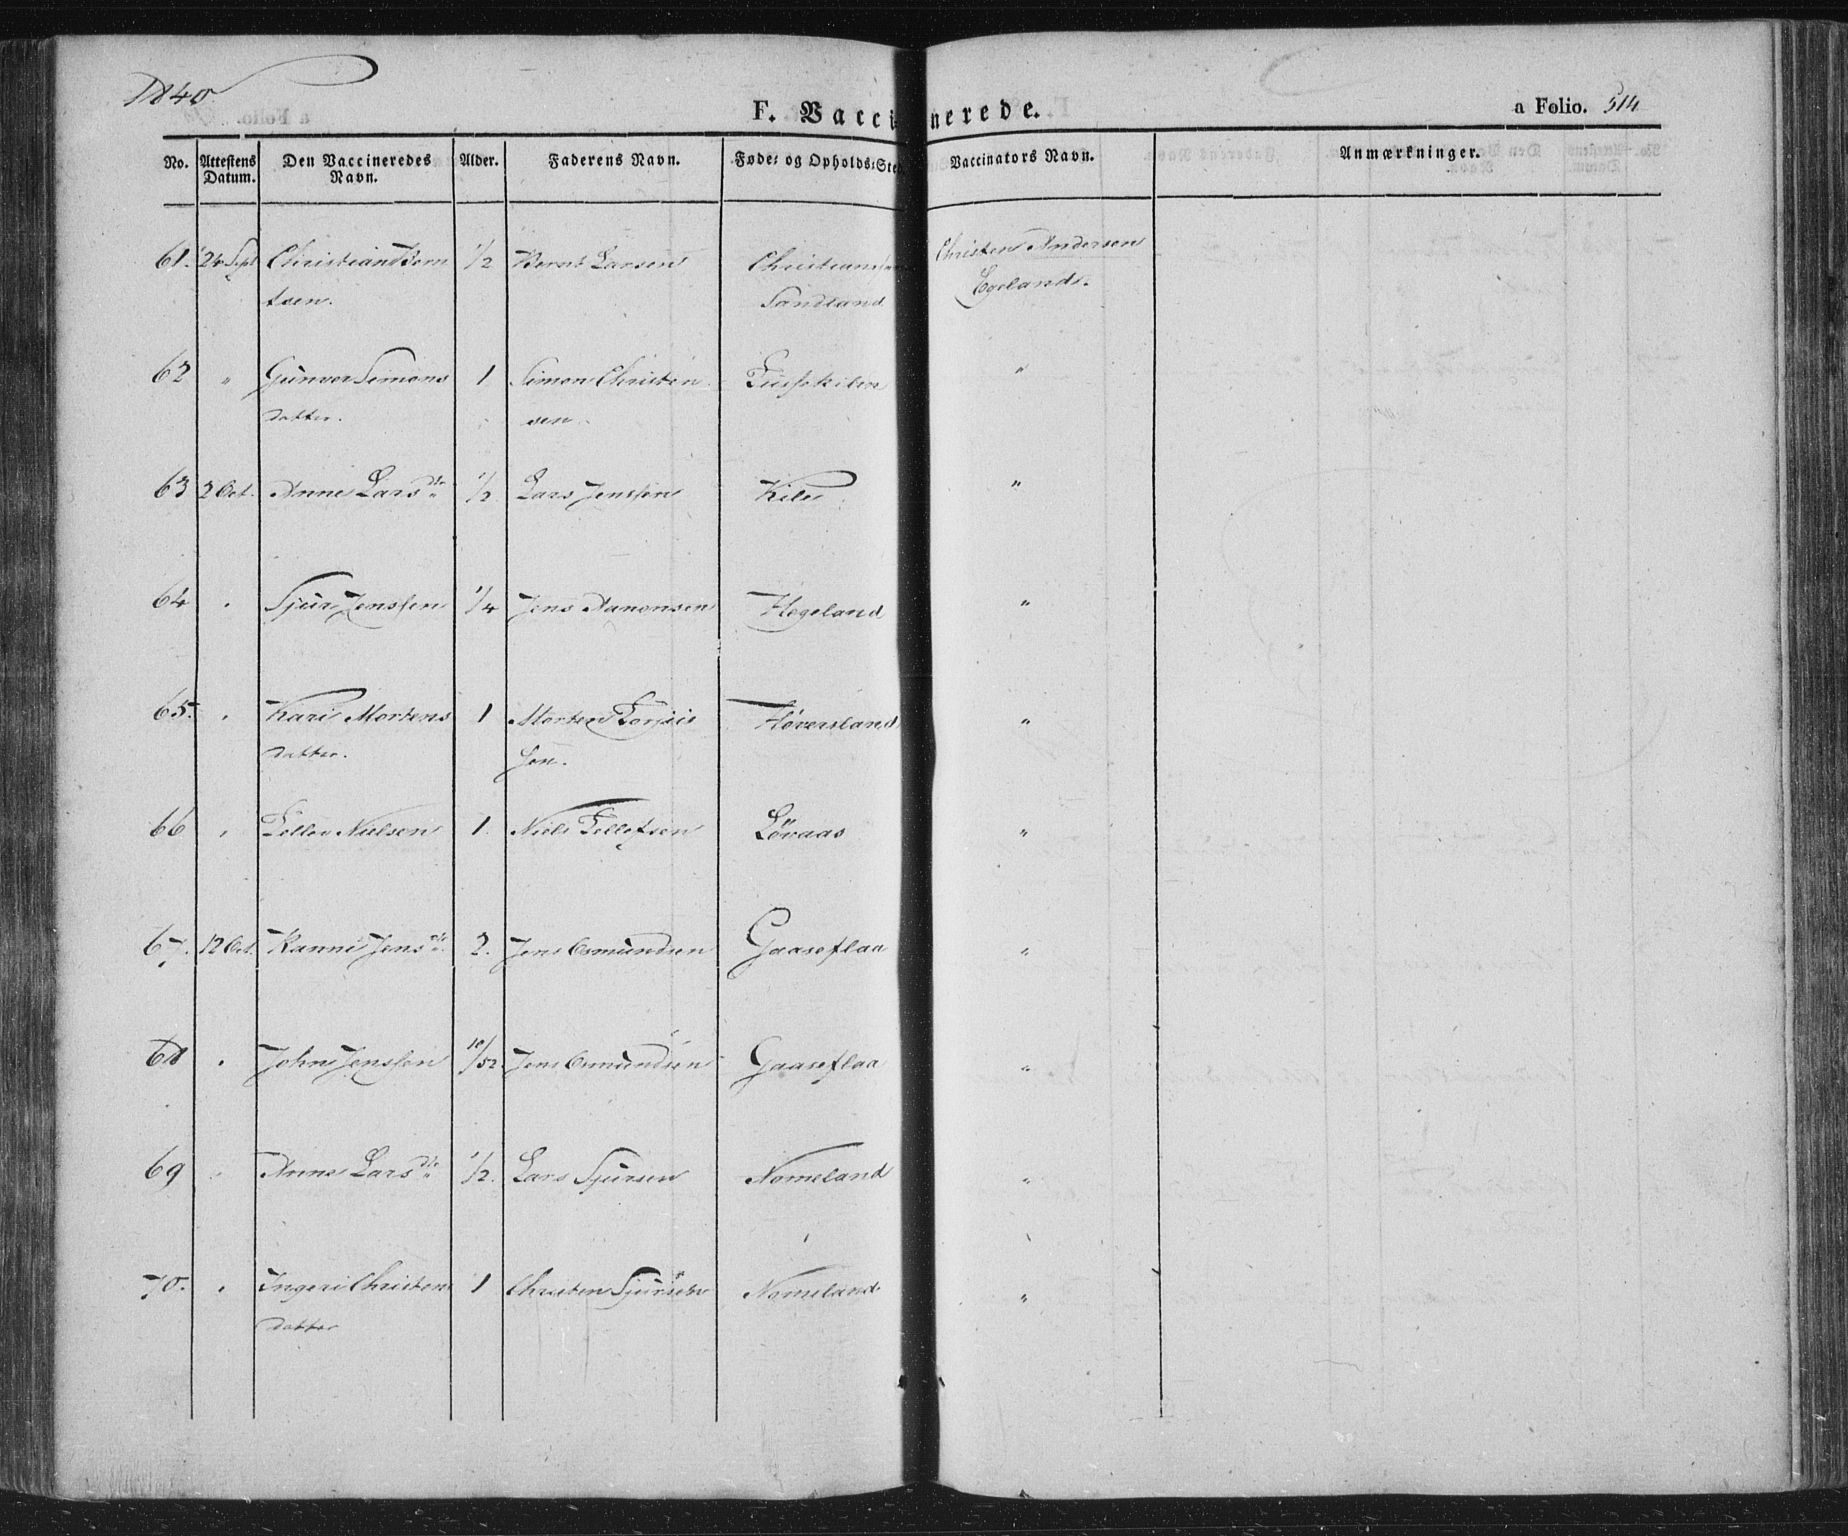 1840
F. Vaccinerede.
a Folio. 514
No. Attestens Datum. Den Vaccineredes Navn. Alder. Faderens Navn. Føde- og Opholds-Sted. Vaccinators Navn. Anmærkninger.
61. 24 Sept Christian Bern 1/2 Bernt Larsen Christians Christen Andersen
tsen. Sandland Egeland.
62 " Gunver Simons 1 Simon Christen "
datter. sen.
63 2 Oct. Anne Larsdtr 1/2 Lars Jenssen Kile "
64 " Sjur Jenssen 1/4 Jens Aanonsen Hegeland "
65. " Kari Mortens 1 Morten Torjus Høversland "
datter. sen.
66 " Tellev Nielsen 1. Niels Tellefsen Løvaas "
67. 12 Oct. Ranni Jensdtr. 2. Jens Osmundsen Gaaseflaa "
68 " John Jenssen 10/52 Jens Osmundsen Gaaseflaa "
69 " Anne Larsdtr 1/2. Lars Sjursen Nomeland "
70. " Ingeri Christens 1 Christen Sjursen Nomeland "
datter